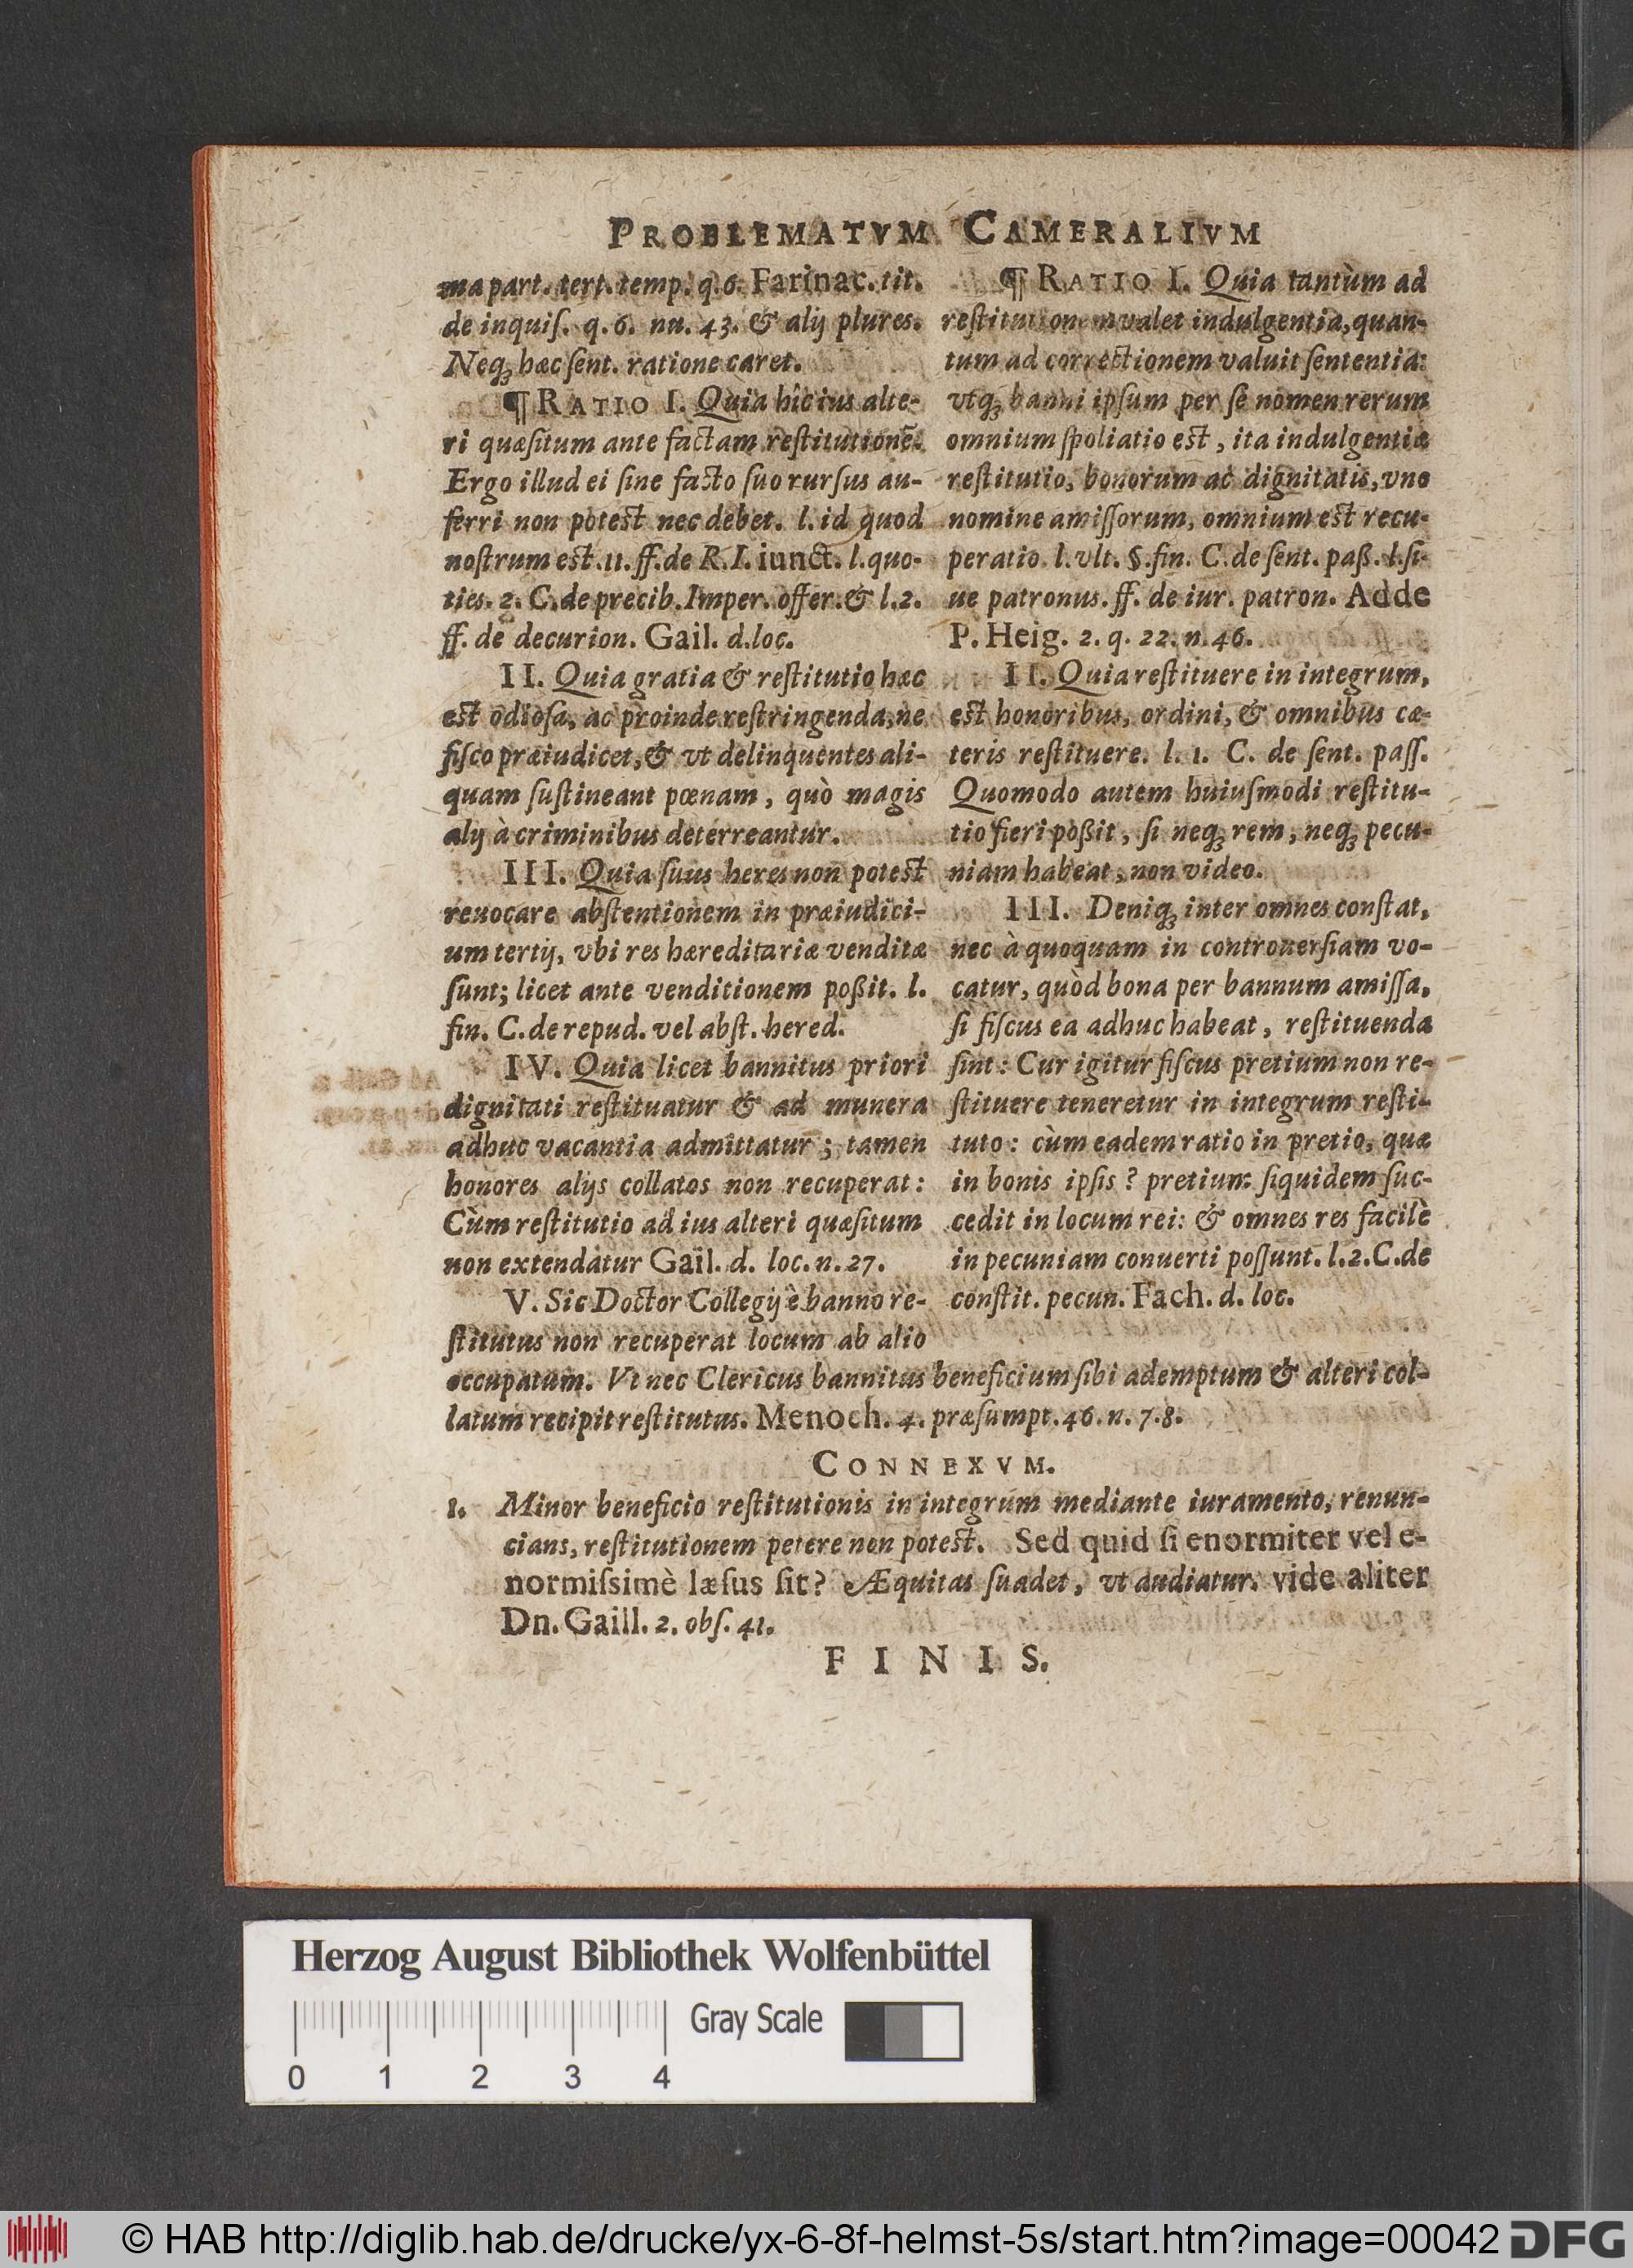 PROBLEMATVM CAMERALIVM
ma part. tert. temp. q. 6. Farinac. tit.
de inquiſ. q. 6. nu. 43. & alij plures.
Neq́; hæc ſent. ratione caret.
¶ RATIO I. Quia hîc ius alte-
ri quæſitum ante factam reſtitutionē.
Ergo illud ei ſine facto ſuo rurſus au-
ferri non potest nec debet. l. id quod
noſtrum est. 11. ff. de R. I. iunct. l. quo-
ties. 2. C. de precib. Imper. offer. & l. 2.
ff. de decurion. Gail. d. loc.
II. Quia gratia & reſtitutio hæc
est odioſa, ac proinde reſtringenda, ne
fiſco præiudicet, & vt delinquentes ali-
quam ſuſtineant pœnam, quò magis
alij à criminibus deterreantur.
III. Quia ſuus heres non potest
reuocare abſtentionem in præiudici-
um tertij, vbi res hæreditariæ venditæ
ſunt; licet ante venditionem poßit. l.
fin. C. de repud. vel abſt. hered.
IV. Quia licet bannitus priori
dignitati reſtituatur & ad munera
adhuc vacantia admittatur; tamen
honores alijs collatos non recuperat:
Cùm reſtitutio ad ius alteri quæſitum
non extendatur Gail. d. loc. n. 27.
V. Sic Doctor Collegij è banno re-
ſtitutus non recuperat locum ab alio
¶ RATIO I. Quia tantùm ad
reſtitutionem valet indulgentia, quan-
tum ad correctionem valuit ſententia:
vtq́; banni ipſum per ſe nomen rerum
omnium ſpoliatio est, ita indulgentiæ
reſtitutio, bonorum ac dignitatis, vno
nomine amiſſorum, omnium est recu-
peratio. l. vlt. §. fin. C. de ſent. paß. l. ſi-
ue patronus. ff. de iur. patron. Adde
P. Heig. 2. q. 22. n. 46.
II. Quia reſtituere in integrum,
est honoribus, ordini, & omnibus cæ-
teris reſtituere. l. 1. C. de ſent. paſſ.
Quomodo autem huiuſmodi reſtitu-
tio fieri poßit, ſi neq́; rem, neq́; pecu-
niam habeat, non video.
III. Deniq́; inter omnes conſtat,
nec à quoquam in controuerſiam vo-
catur, quòd bona per bannum amiſſa,
ſi fiſcus ea adhuc habeat, reſtituenda
ſint: Cur igitur fiſcus pretium non re-
ſtituere teneretur in integrum reſti-
tuto: cùm eadem ratio in pretio, quæ
in bonis ipſis? pretium ſiquidem ſuc-
cedit in locum rei: & omnes res facilè
in pecuniam conuerti poſſunt. l. 2. C. de
conſtit. pecun. Fach. d. loc.
occupatum. Vt nec Clericus bannitus beneficium ſibi ademptum & alteri col-
latum recipit reſtitutus. Menoch. 4. præſumpt. 46. n. 7. 8.
CONNEXVM.
1. Minor beneficio reſtitutionis in integrum mediante iuramento, renun-
cians, reſtitutionem petere non potest. Sed quid ſi enormiter vel e-
normiſsimè læſus ſit? Æquitas ſuadet, vt audiatur. vide aliter
Dn. Gaill. 2. obſ. 41.
FINIS.
Herzog August Bibliothek Wolfenbüttel
Gray Scale
0 1 2 3 4
© HAB http://diglib.hab.de/drucke/yx-6-8f-helmst-5s/start.htm?image=00042 DFG